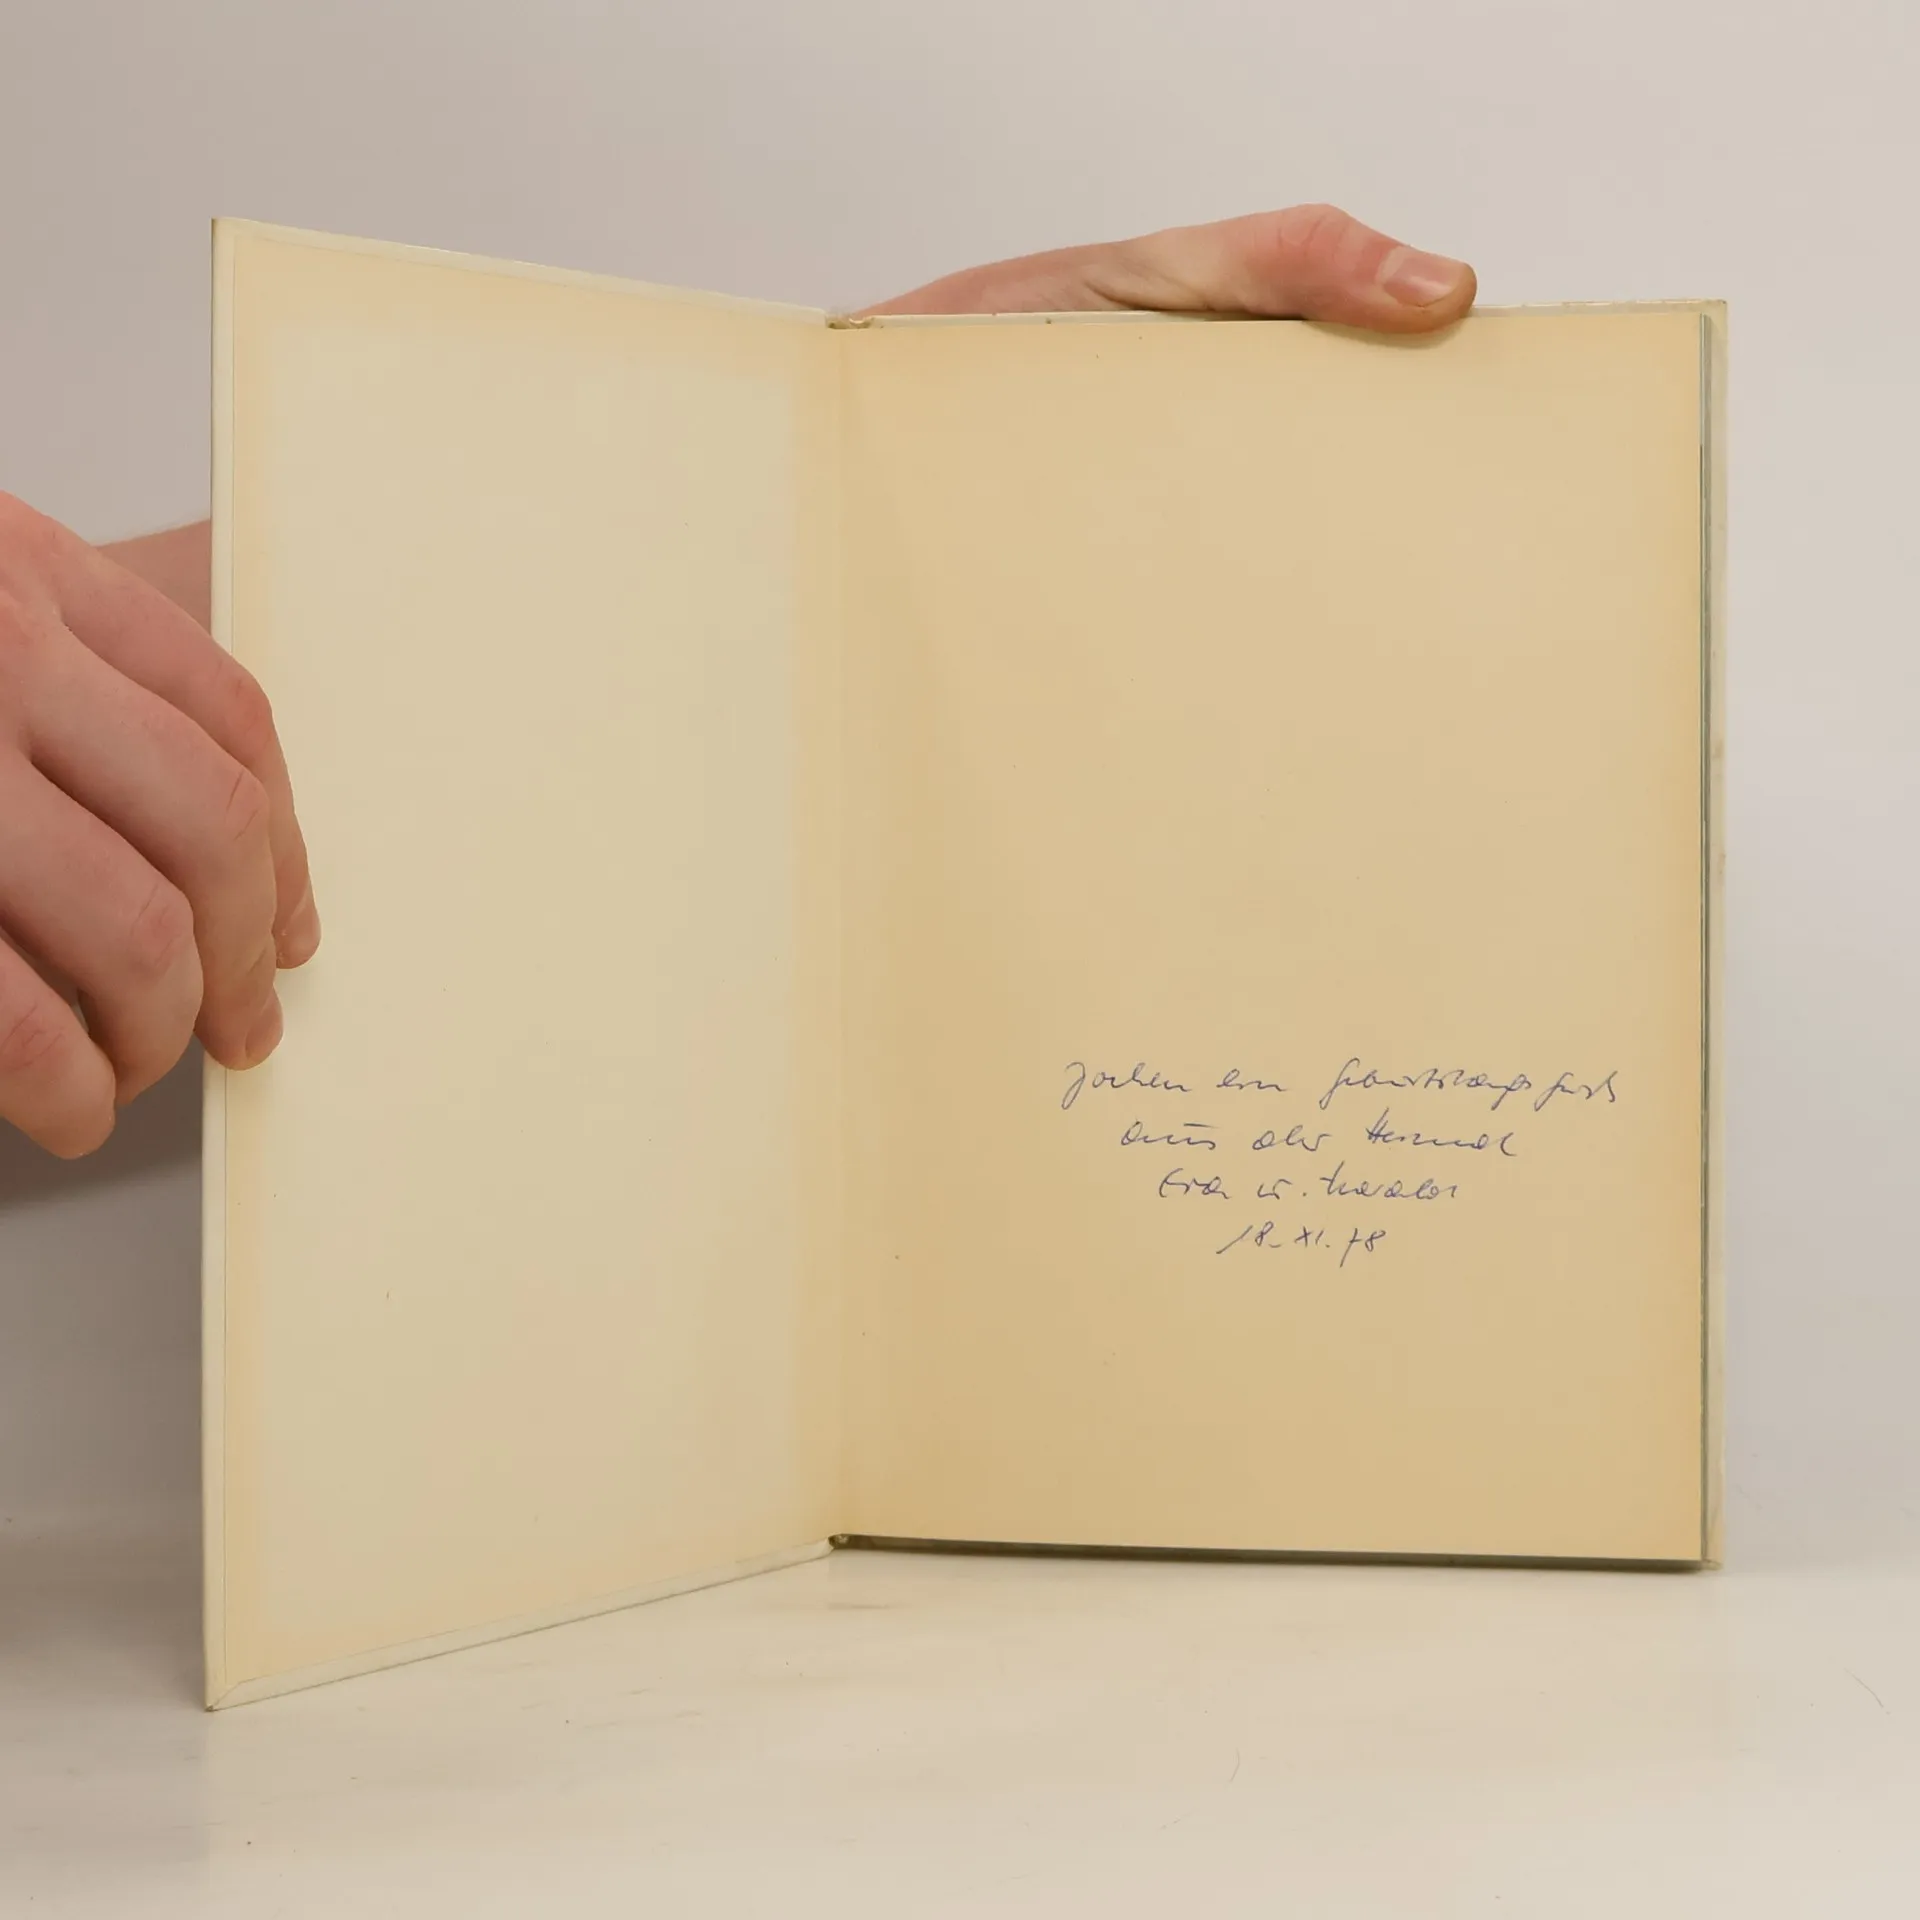 Jochen ein Geburtstagsgruß
aus der Heimat
Eva u.
18. XI. 78